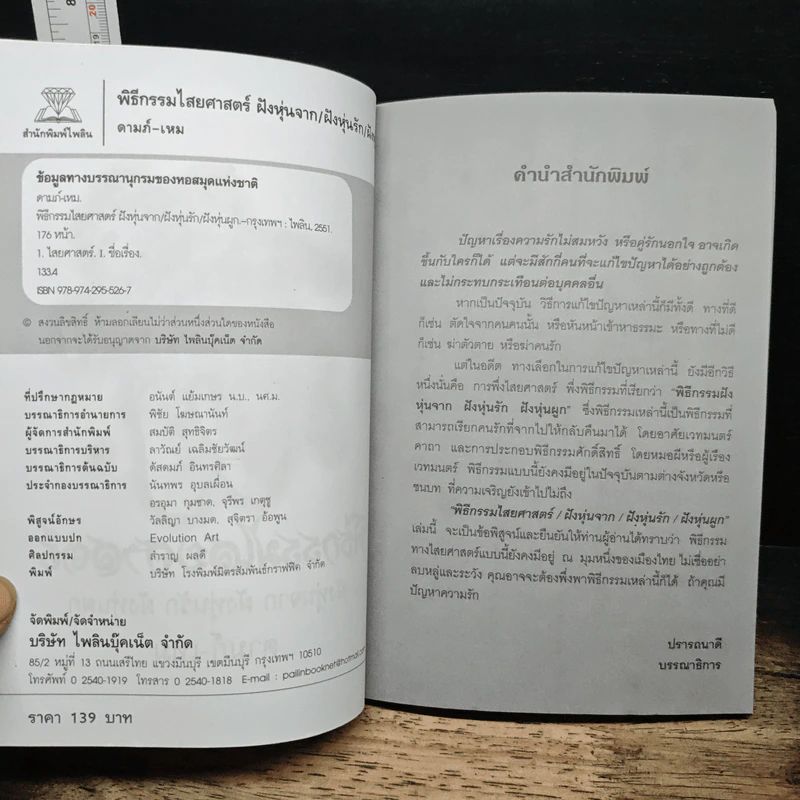 สำนักพิมพ์ไพลิน
พิธีกรรมไสยศาสตร์ ฝังหุ่นจาก/ฝังหุ่นรัก/
ดามภ์-เหม
ข้อมูลทางบรรณานุกรมของหอสมุดแห่งชาติ
ดามภ์-เหม.
พิธีกรรมไสยศาสตร์ ฝังหุ่นจาก/ฝังหุ่นรัก/ฝังหุ่นผูก.--กรุงเทพฯ : ไพลิน, 2551.
176 หน้า.
1. ไสยศาสตร์. I. ชื่อเรื่อง.
133.4
ISBN 978-974-295-526-7
© สงวนลิขสิทธิ์ ห้ามลอกเลียนไม่ว่าส่วนหนึ่งส่วนใดของหนังสือ
นอกจากจะได้รับอนุญาตจาก บริษัท ไพลินบุ๊คเน็ต จำกัด
ที่ปรึกษากฎหมาย อนันต์ แย้มเกษร น.บ., นศ.ม.
บรรณาธิการอำนวยการ พิชัย โฆษณานันท์
ผู้จัดการสำนักพิมพ์ สมบัติ สุทธิจิตร
บรรณาธิการบริหาร ลาวัณย์ เฉลิมชัยวัฒน์
บรรณาธิการต้นฉบับ ตัสดมภ์ อินทรศิลา
ประจำกองบรรณาธิการ นันทพร อุบลเผื่อน
อรอุมา กุมชาด, จุรีพร เกตุชู
พิสูจน์อักษร วัลลิญา บางมด, สุจิตรา อ้อพูน
ออกแบบปก Evolution Art
ศิลปกรรม สำราญ ผลดี
พิมพ์ บริษัท โรงพิมพ์มิตรสัมพันธ์กราฟฟิค จำกัด
จัดพิมพ์/จัดจำหน่าย
บริษัท ไพลินบุ๊คเน็ต จำกัด
85/2 หมู่ที่ 13 ถนนเสรีไทย แขวงมีนบุรี เขตมีนบุรี กรุงเทพฯ 10510
โทรศัพท์ 0 2540-1919 โทรสาร 0 2540-1818 E-mail : pailinbooknet@hotmail.com
ราคา 139 บาท
คำนำสำนักพิมพ์
ปัญหาเรื่องความรักไม่สมหวัง หรือคู่รักนอกใจ อาจเกิด
ขึ้นกับใครก็ได้ แต่จะมีสักกี่คนที่จะแก้ไขปัญหาได้อย่างถูกต้อง
และไม่กระทบกระเทือนต่อบุคคลอื่น
หากเป็นปัจจุบัน วิธีการแก้ไขปัญหาเหล่านี้ก็มีทั้งดี ทางที่ดี
ก็เช่น ตัดใจจากคนคนนั้น หรือหันหน้าเข้าหาธรรมะ หรือทางที่ไม่ดี
ก็เช่น ฆ่าตัวตาย หรือฆ่าคนรัก
แต่ในอดีต ทางเลือกในการแก้ไขปัญหาเหล่านี้ ยังมีอีกวิธี
หนึ่งนั่นคือ การพึ่งไสยศาสตร์ พึ่งพิธีกรรมที่เรียกว่า "พิธีกรรมฝัง
หุ่นจาก ฝังหุ่นรัก ฝังหุ่นผูก" ซึ่งพิธีกรรมเหล่านี้เป็นพิธีกรรมที่
สามารถเรียกคนรักที่จากไปให้กลับคืนมาได้ โดยอาศัยเวทมนตร์
คาถา และการประกอบพิธีกรรมศักดิ์สิทธิ์ โดยหมอผีหรือผู้เรือง
เวทมนตร์ พิธีกรรมแบบนี้ยังคงมีอยู่ในปัจจุบันตามต่างจังหวัดหรือ
ชนบท ที่ความเจริญยังเข้าไปไม่ถึง
"พิธีกรรมไสยศาสตร์ / ฝังหุ่นจาก / ฝังหุ่นรัก / ฝังหุ่นผูก"
เล่มนี้ จะเป็นข้อพิสูจน์และยืนยันให้ท่านผู้อ่านได้ทราบว่า พิธีกรรม
ทางไสยศาสตร์แบบนี้ยังคงมีอยู่ ณ มุมหนึ่งของเมืองไทย ไม่เชื่ออย่า
ลบหลู่และระวัง คุณอาจจะต้องพึ่งพาพิธีกรรมเหล่านี้ก็ได้ ถ้าคุณมี
ปัญหาความรัก
ปรารถนาดี
บรรณาธิการ